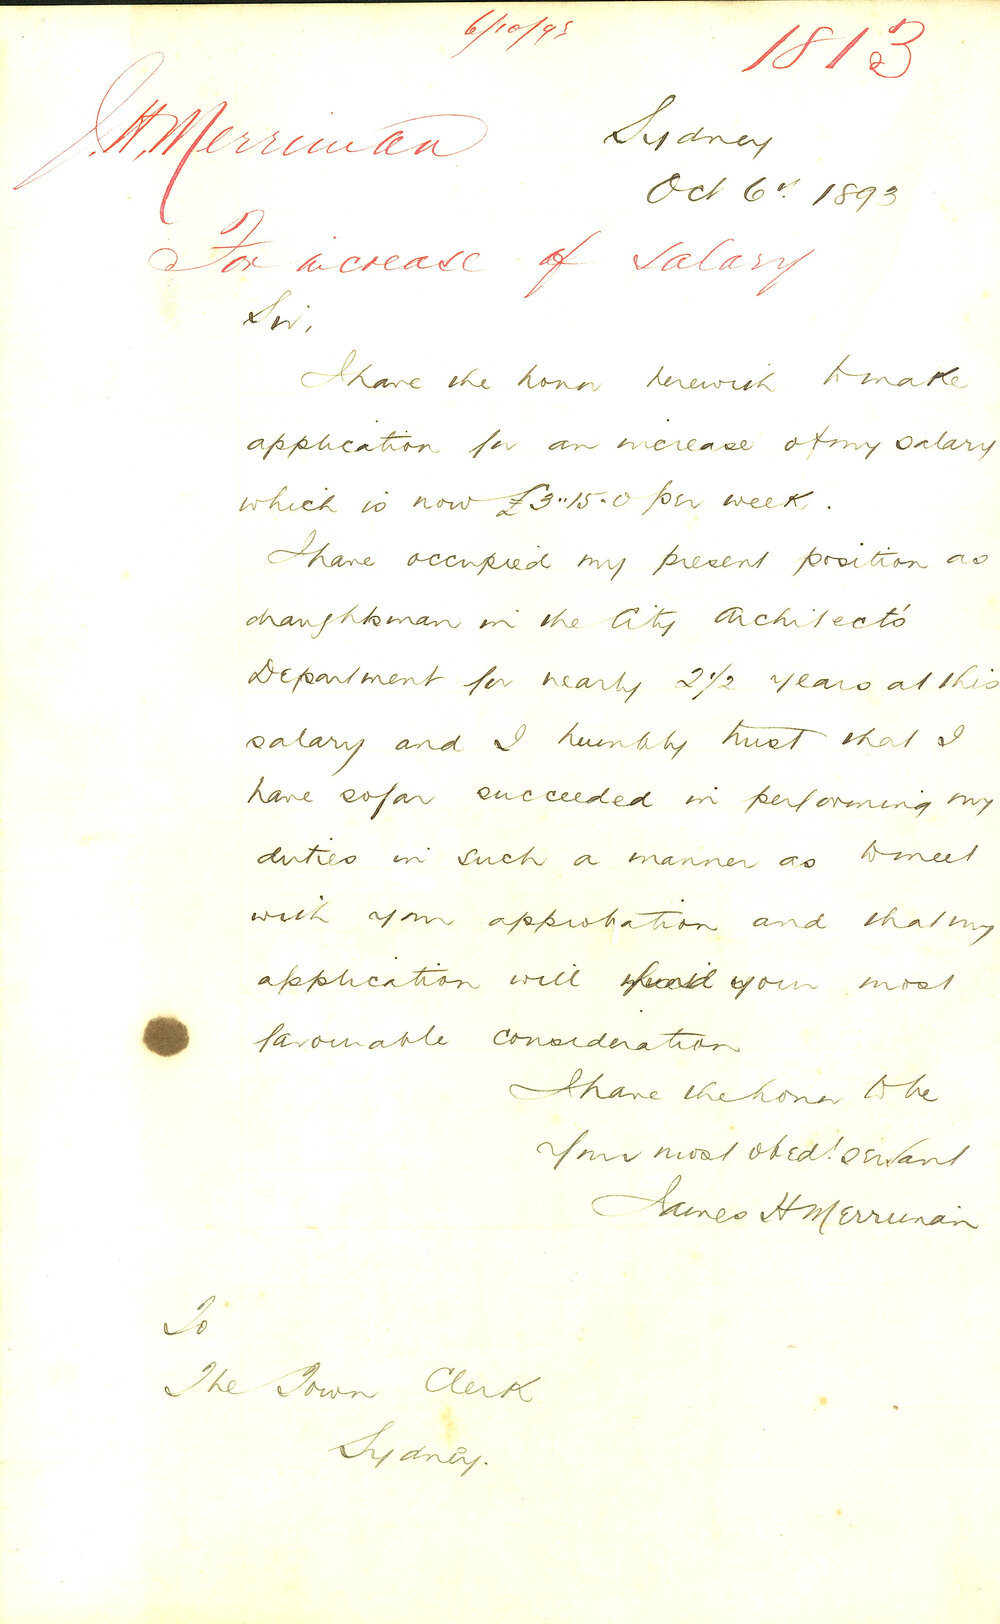 6/10/93
1813
J. H. Merriman
Sydney
Oct 6th 1893
For increase of salary
Sir,
I have the honor herewith to make
application for an increase of my salary
which is now £3..15.0 per week.
I have occupied my present position as
draughtsman in the City Architect's
Department for nearly 2 1/2 years at this
salary and I humbly trust that I
have so far succeeded in performing my
duties in such a manner as to meet
with your approbation and that my
application will your most
favourable consideration
I have the honor to be
Your most obedt servant
James H Merriman
To
The Town Clerk
Sydney.